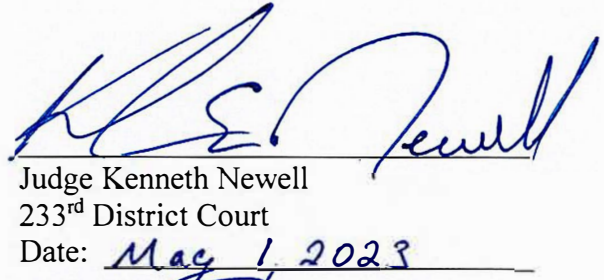 K E. Newell
Judge Kenneth Newell
233rd District Court
Date: May 1, 2023